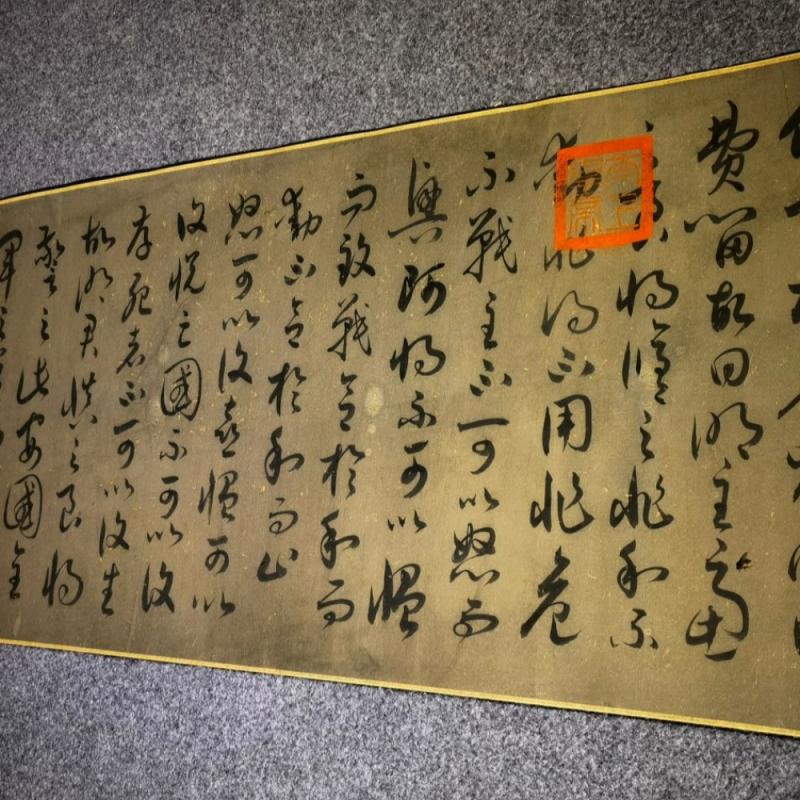 費留故曰明主慮
將之非利不
動非得不用非危
不戰主不可以怒而
興師將不可以慍
而致戰合於利而
動不合於利而止
怒可以復喜慍可以
復悅亡國不可以復
存死者不可以復生
故明君慎之良將
警之此安國全
軍之